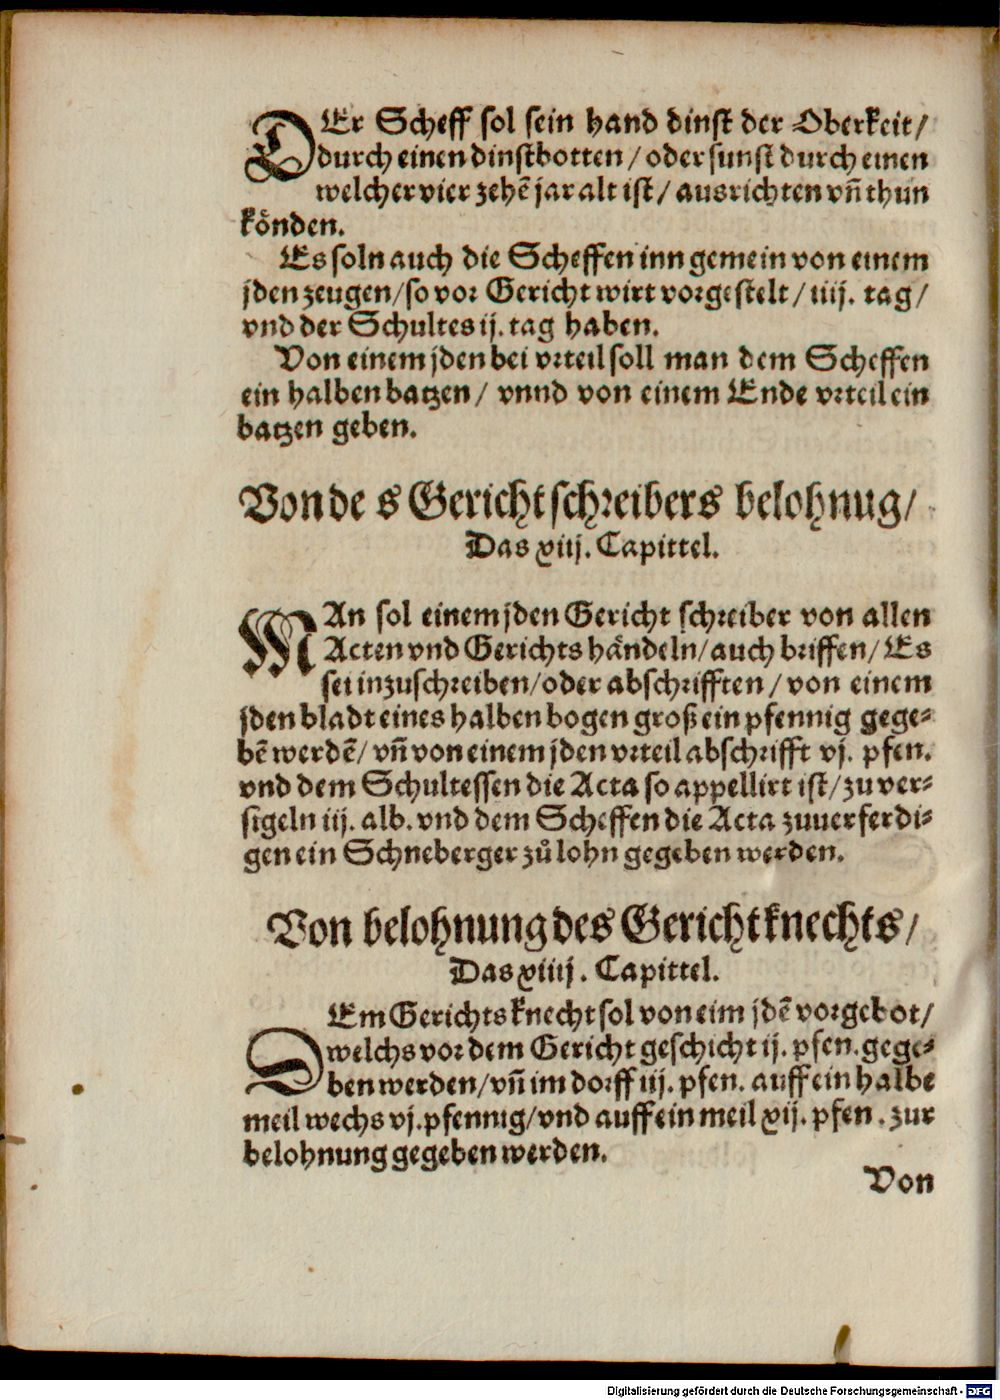 DEr Scheff sol sein hand dinst der Oberkeit/
durch einen dinstbotten/ oder sunst durch einen
welcher vier zehẽ jar alt ist/ ausrichten vñ thun
koͤnden.
Es soln auch die Scheffen inn gemein von einem
jden zeugen/ so vor Gericht wirt vorgestelt/ iiij. tag/
vnd der Schultes ij. tag haben.
Von einem jden bei vrteil soll man dem Scheffen
ein halben batzen/ vnnd von einem Ende vrteil ein
batzen geben.
Von de s Gericht schreibers belohnug/
Das xiij. Capittel.
MAn sol einem jden Gericht schreiber von allen
Acten vnd Gerichts haͤndeln/ auch briffen/ Es
sei inzuschreiben/ oder abschrifften/ von einem
jden bladt eines halben bogen groß ein pfennig gege⸗
bẽ werdẽ/ vñ von einem jden vrteil abschrifft vj. pfen.
vnd dem Schultessen die Acta so appellirt ist/ zu ver⸗
sigeln iij. alb. vnd dem Scheffen die Acta zuuerferdi⸗
gen ein Schneberger zů lohn gegeben werden.
Von belohnung des Gericht knechts/
Das xiiij. Capittel.
DEm Gerichts knecht sol von eim jdẽ vorgebot/
welchs vor dem Gericht geschicht ij. pfen. gege⸗
ben werden/ vñ im dorff iij. pfen. auff ein halbe
meil wechs vj. pfennig/ vnd auff ein meil xij. pfen. zur
belohnung gegeben werden.
Von
Digitalisierung gefördert durch die Deutsche Forschungsgemeinschaft - DFG